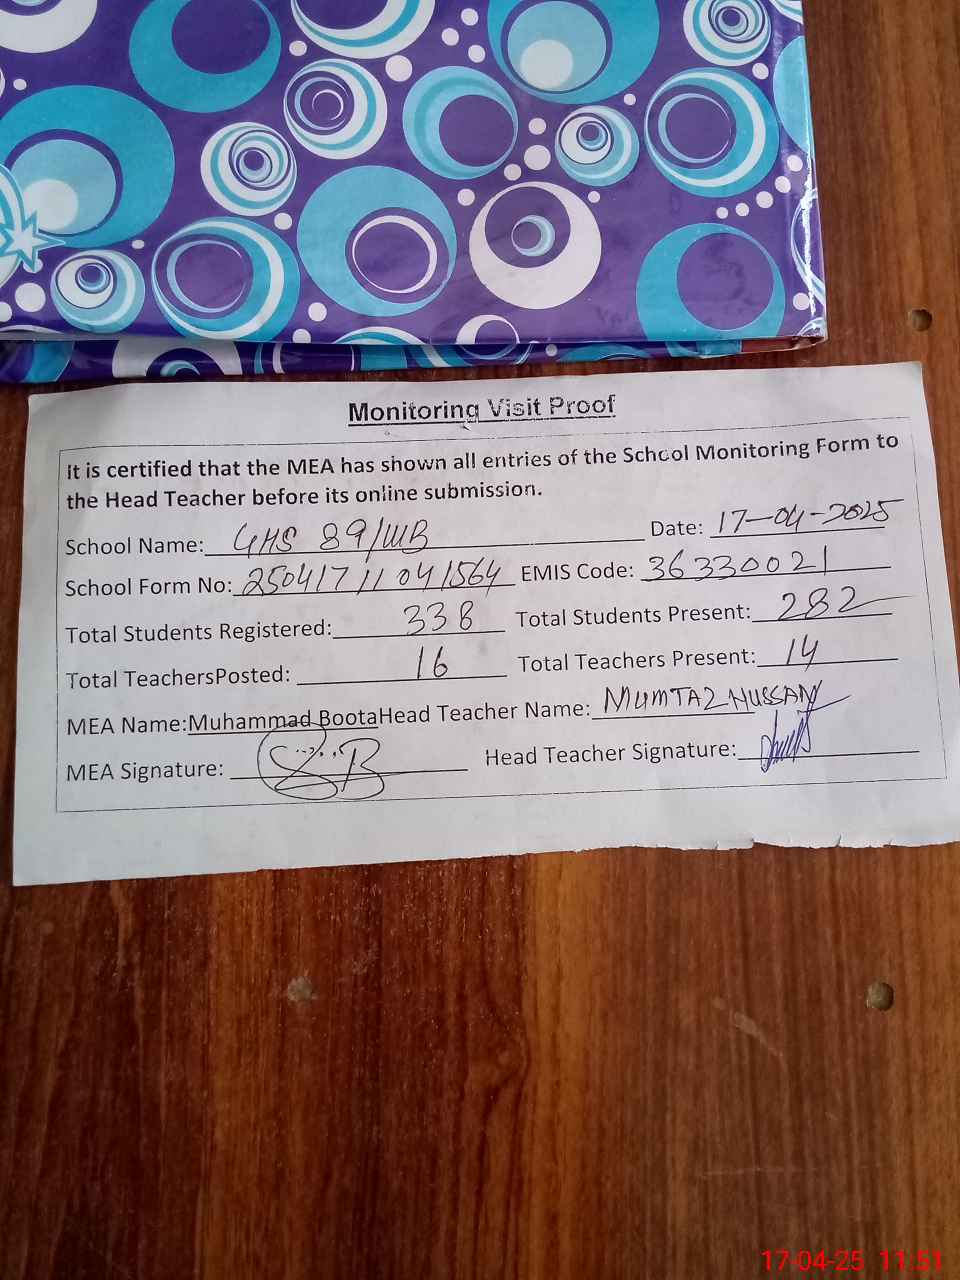 Monitoring Visit Proof
It is certified that the MEA has shown all entries of the School Monitoring Form to
the Head Teacher before its online submission.
School Name: GHS 89/WB Date: 17-04-2025
School Form No: 25041711041564 EMIS Code: 36330021
Total Students Registered: 338 Total Students Present: 282
Total TeachersPosted: 16 Total Teachers Present: 14
MEA Name:Muhammad BootaHead Teacher Name: MUMTAZ HUSSAN
MEA Signature: Head Teacher Signature:
17-04-25 11:51